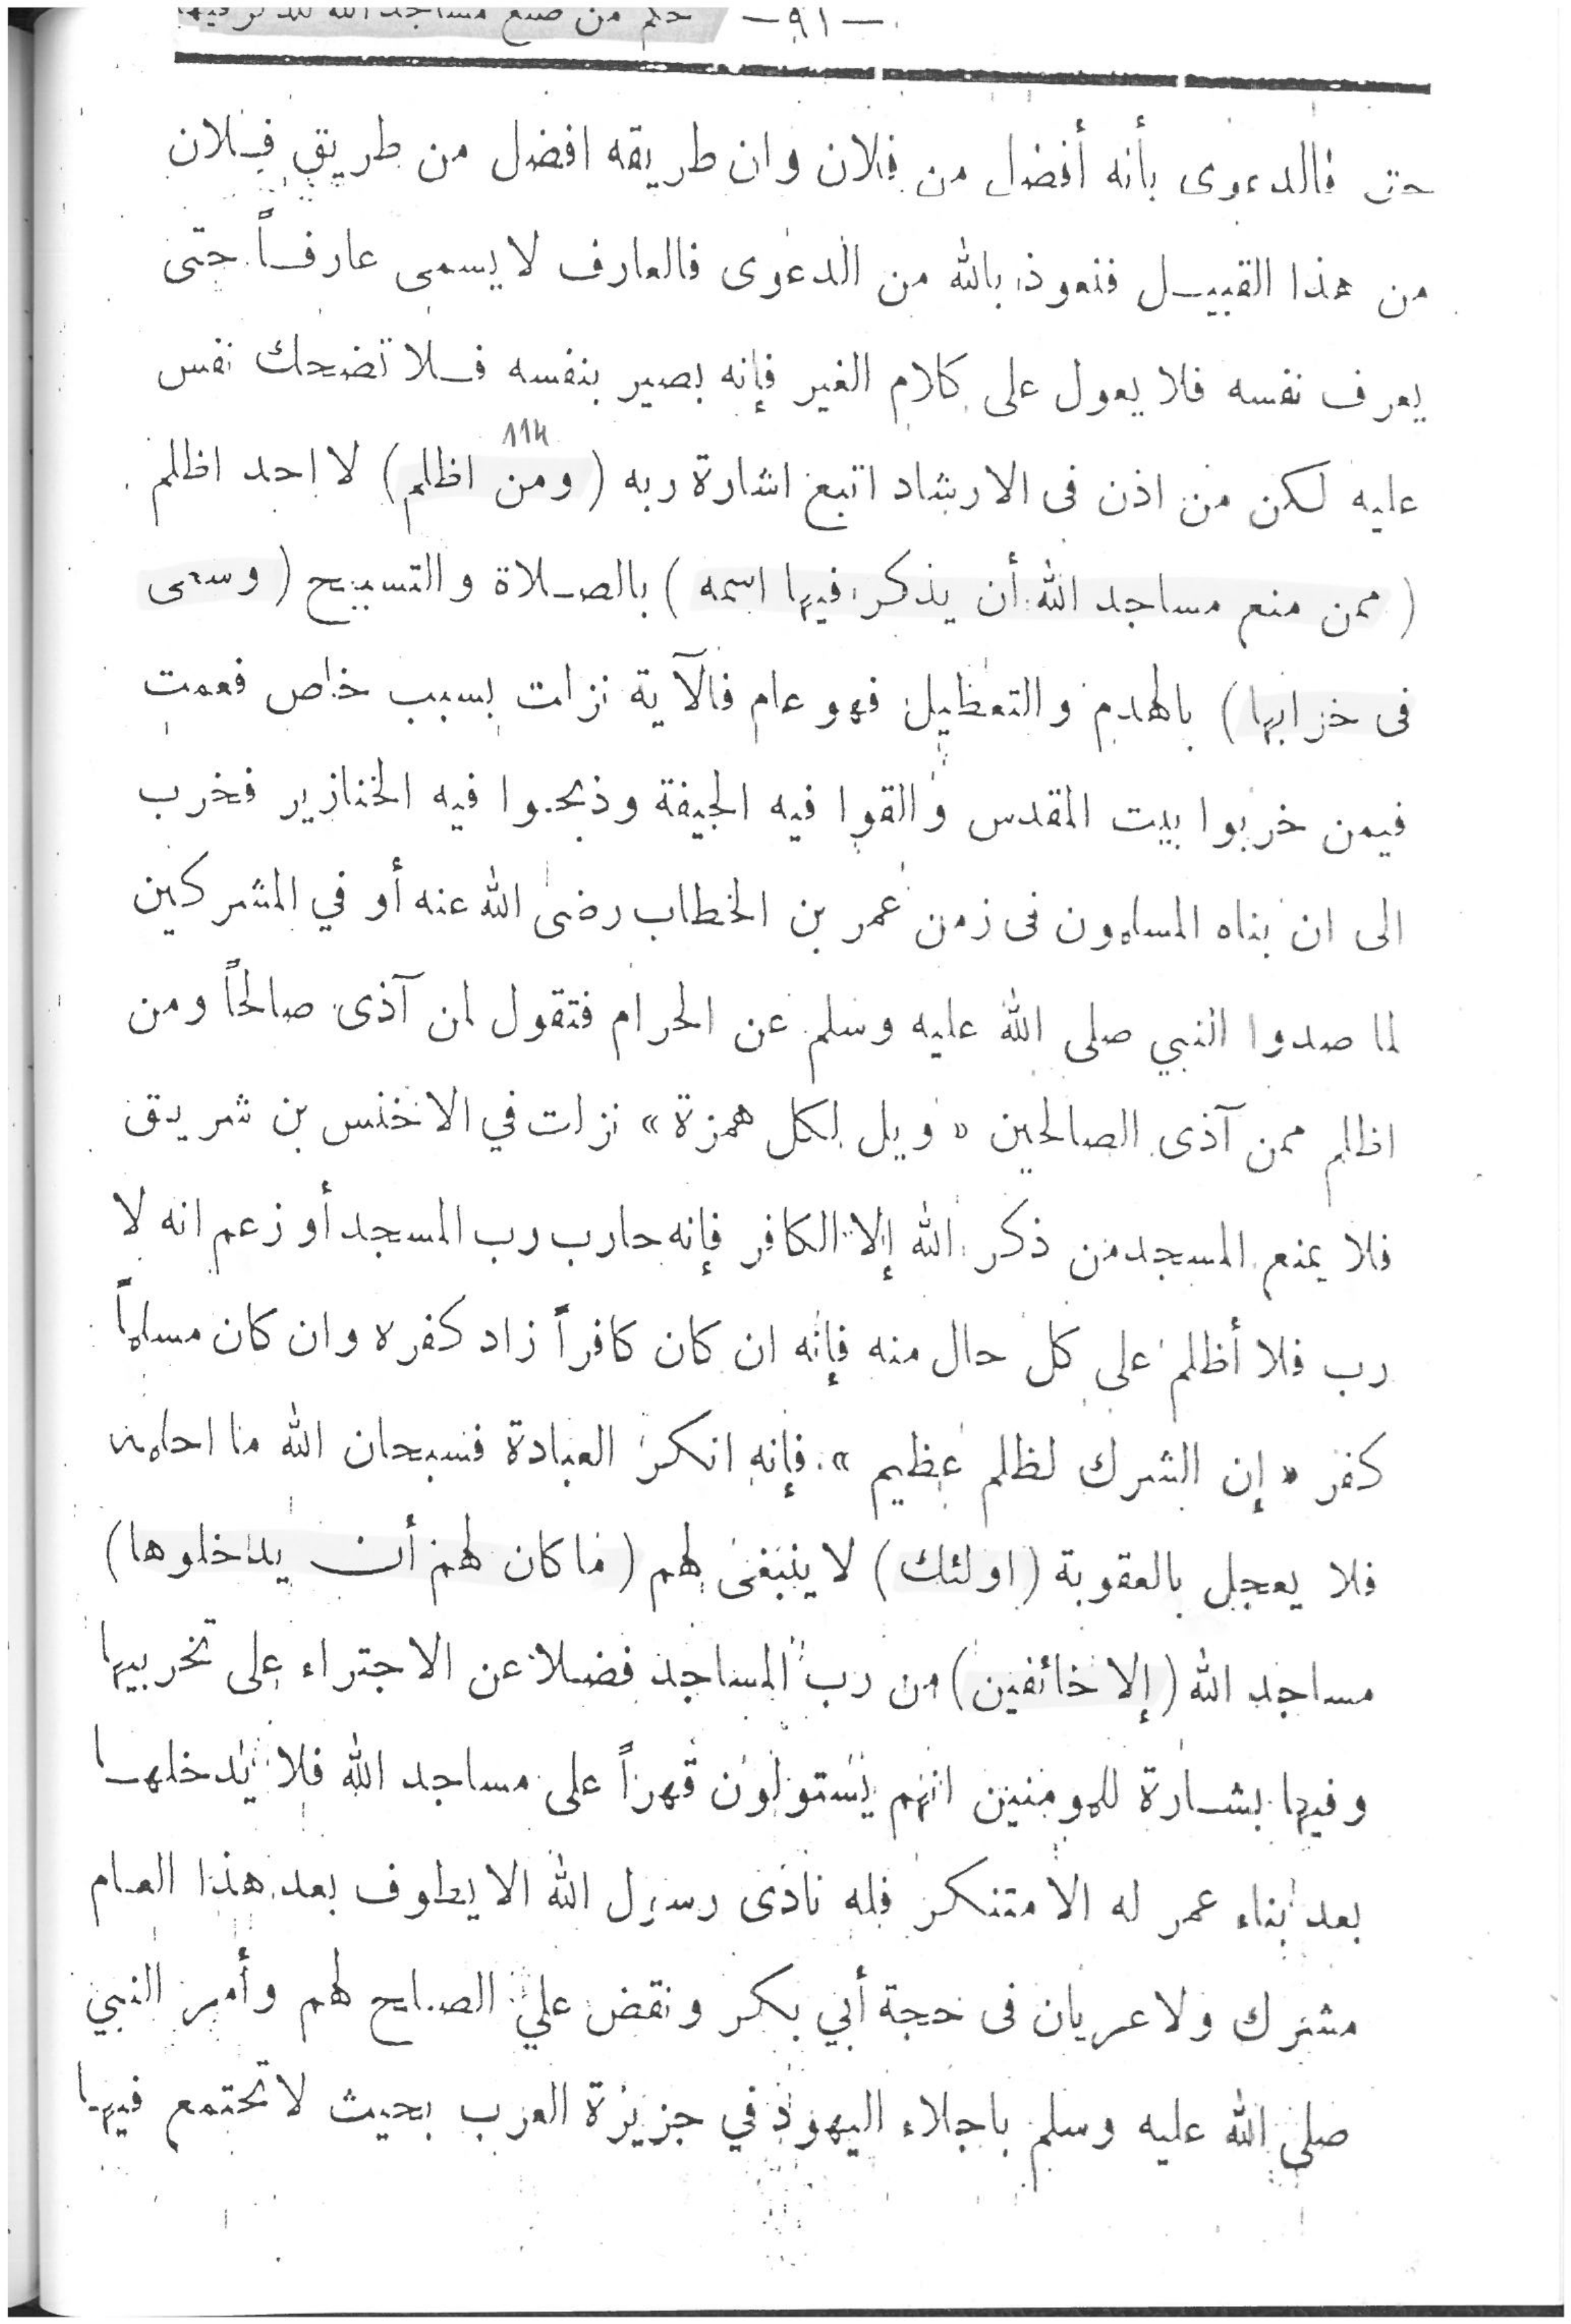 — ٩١ — حكم من منع مساجد الله للذكر فيها
حق فالدعوى بأنه أفضل من فلان وان طريقه افضل من طريق فلان
من هذا القبيل فنعوذ بالله من الدعوى فالعارف لا يسمى عارفاً حتى
يعرف نفسه فلا يعول على كلام الغير فإنه بصير بنفسه فلا تضحك نفس
114
عليه لكن من اذن فى الارشاد اتبع اشارة ربه (ومن اظلم) لا احد اظلم
(ممن منع مساجد الله أن يذكر فيها اسمه) بالصلاة والتسبيح (وسعى
فى خرابها) بالهدم والتعطيل فهو عام فالآية نزلت بسبب خاص فعمت
فيمن خربوا بيت المقدس والقوا فيه الجيفة وذبحوا فيه الخنازير فخرب
الى ان بناه المسلمون فى زمن عمر بن الخطاب رضى الله عنه أو في المشركين
لما صدوا النبي صلى الله عليه وسلم عن الحرام فتقول لمن آذى صالحاً ومن
اظلم ممن آذى الصالحين « ويل لكل همزة » نزلت في الاخنس بن شريق
فلا يمنع المسجد من ذكر الله إلا الكافر فإنه حارب رب المسجد أو زعم انه لا
رب فلا أظلم على كل حال منه فإنه ان كان كافراً زاد كفره وان كان مسلماً
كفر « إن الشرك لظلم عظيم » فإنه انكر العبادة فسبحان الله ما احلمه
فلا يعجل بالعقوبة (اولئك) لا ينبغى لهم (ما كان لهم أن يدخلوها)
مساجد الله (إلا خائفين) من رب المساجد فضلا عن الاجتراء على تخريبها
وفيها بشارة للمومنين انهم يستولون قهراً على مساجد الله فلا يدخلها
بعد بناء عمر له الا متنكر فله نادى رسول الله الا يطوف بعد هذا العام
مشرك ولا عريان فى حجة أبي بكر ونقض علي الصلح لهم وأمر النبي
صلى الله عليه وسلم باجلاء اليهود في جزيرة العرب بحيث لا تجتمع فيها